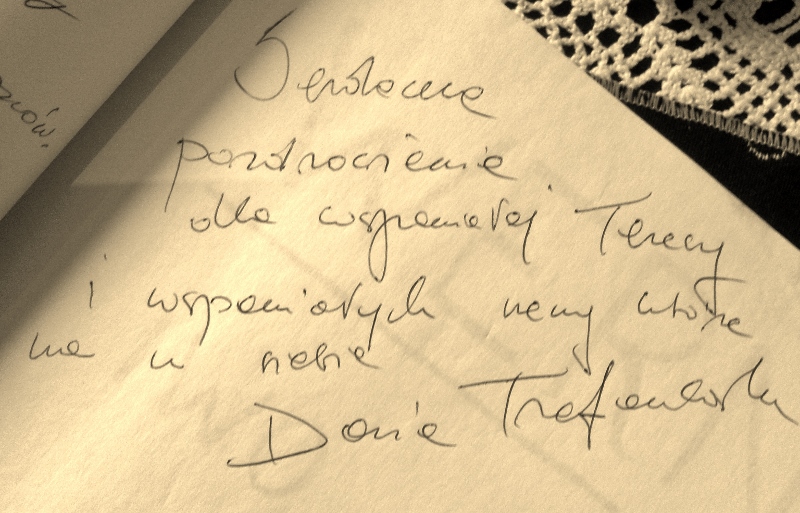 zców.
Serdeczne
pozdrowienie
dla wspaniałej Teresy
i wspaniałych rzeczy które
ma u siebie
Daria Trafankowska